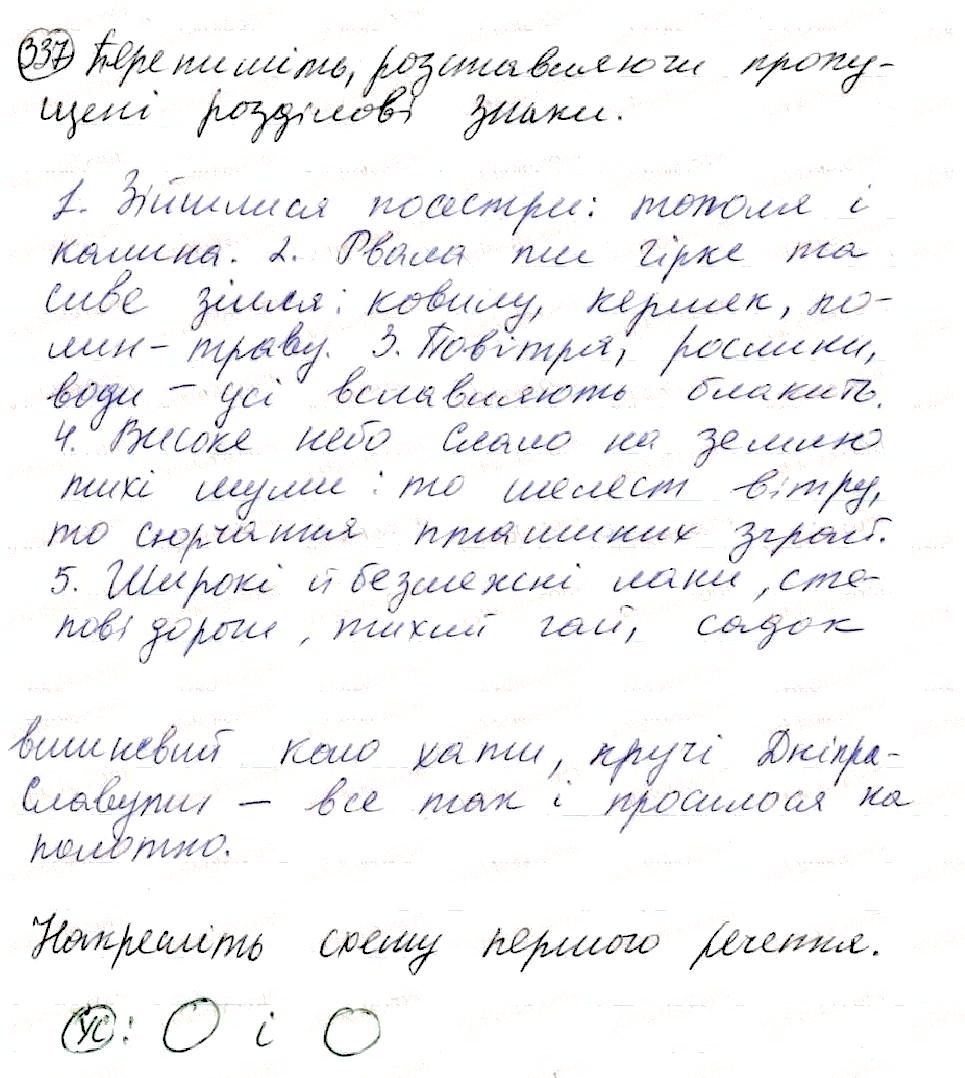 337 Перепишіть, розставляючи пропу-
щені розділові знаки.
1. Зійшлися посестри: тополя і
калина. 2. Рвала ти гірке та
сиве зілля: ковилу, кермек, по-
лин-траву. 3. Повітря, рослини,
води – усі вславляють блакить.
4. Високе небо слало на землю
тихі шуми: то шелест вітру,
то сюрчання пташиних зграй.
5. Широкі й безмежні лани, сте-
пові дороги, тихий гай, садок
вишневий коло хати, кручі Дніпра-
Славути – все так і просилося на
полотно.
Накресліть схему першого речення.
УС: О і О